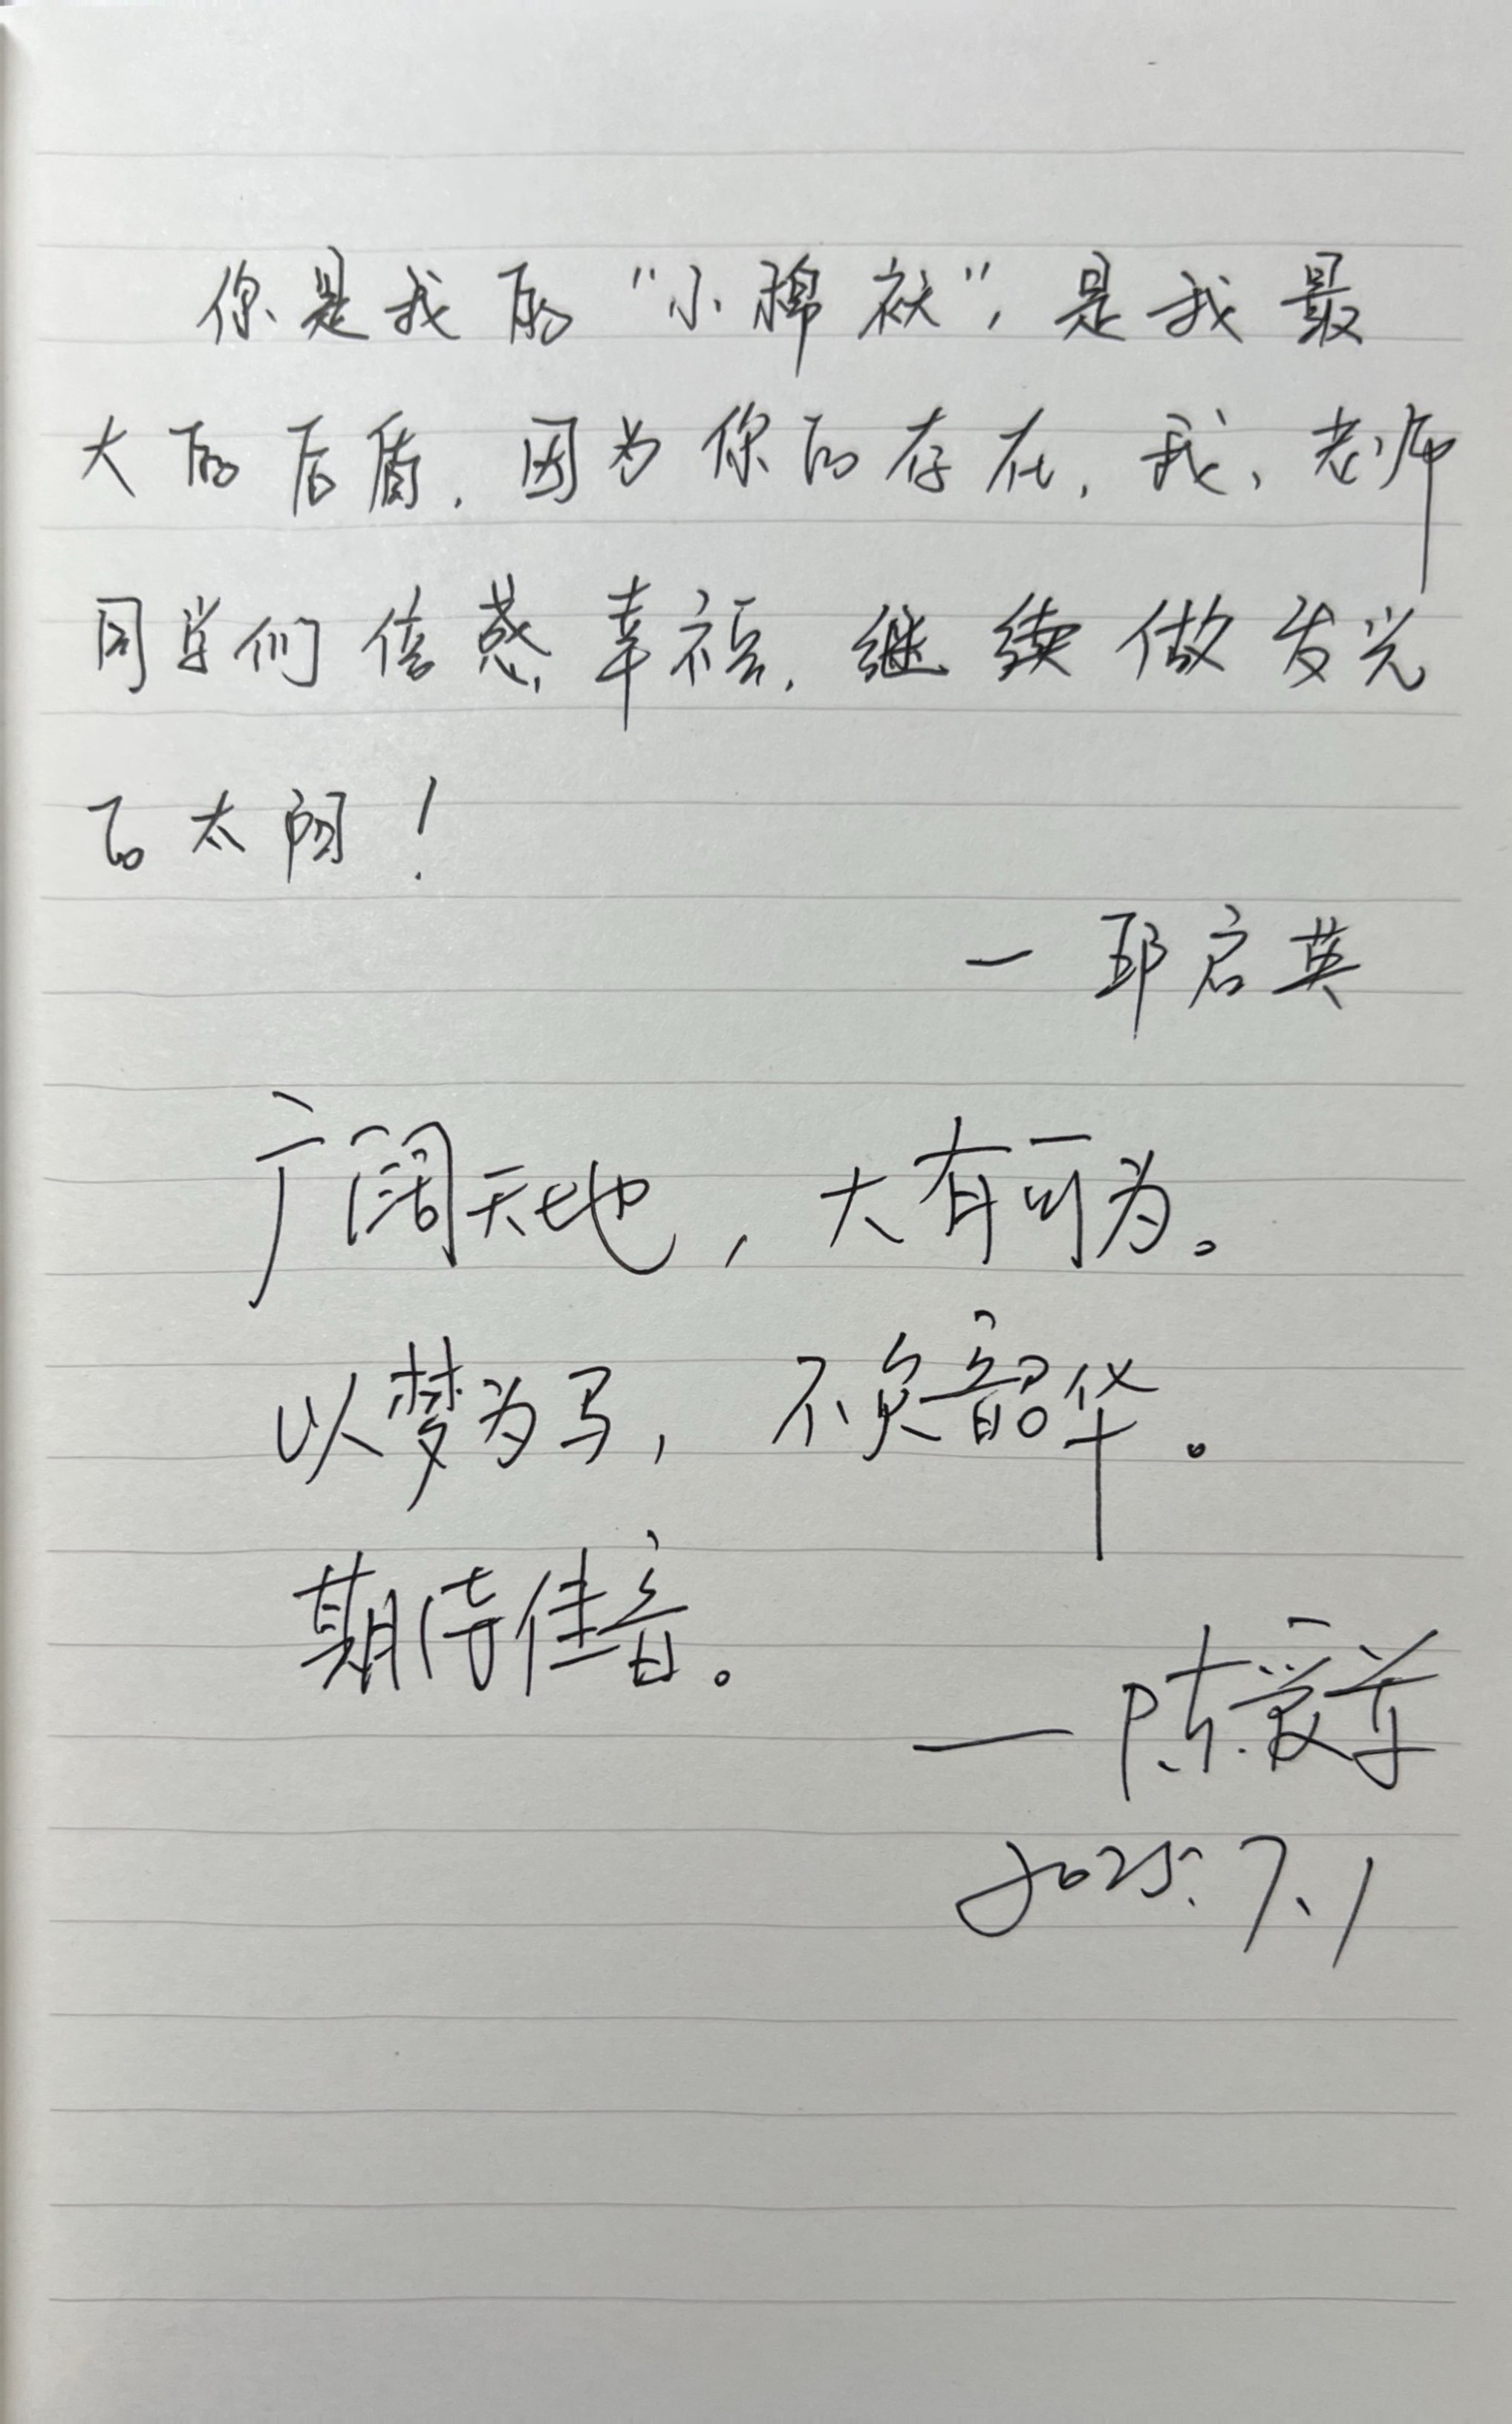 你是我的“小棉袄”,是我最
大的后盾,因为你的存在,我、老师
同学们倍感幸福,继续做发光
的太阳!
— 邱启英
广阔天地,大有可为。
以梦为马,不负韶华。
期待佳音。
——陈爱
2025.7.1